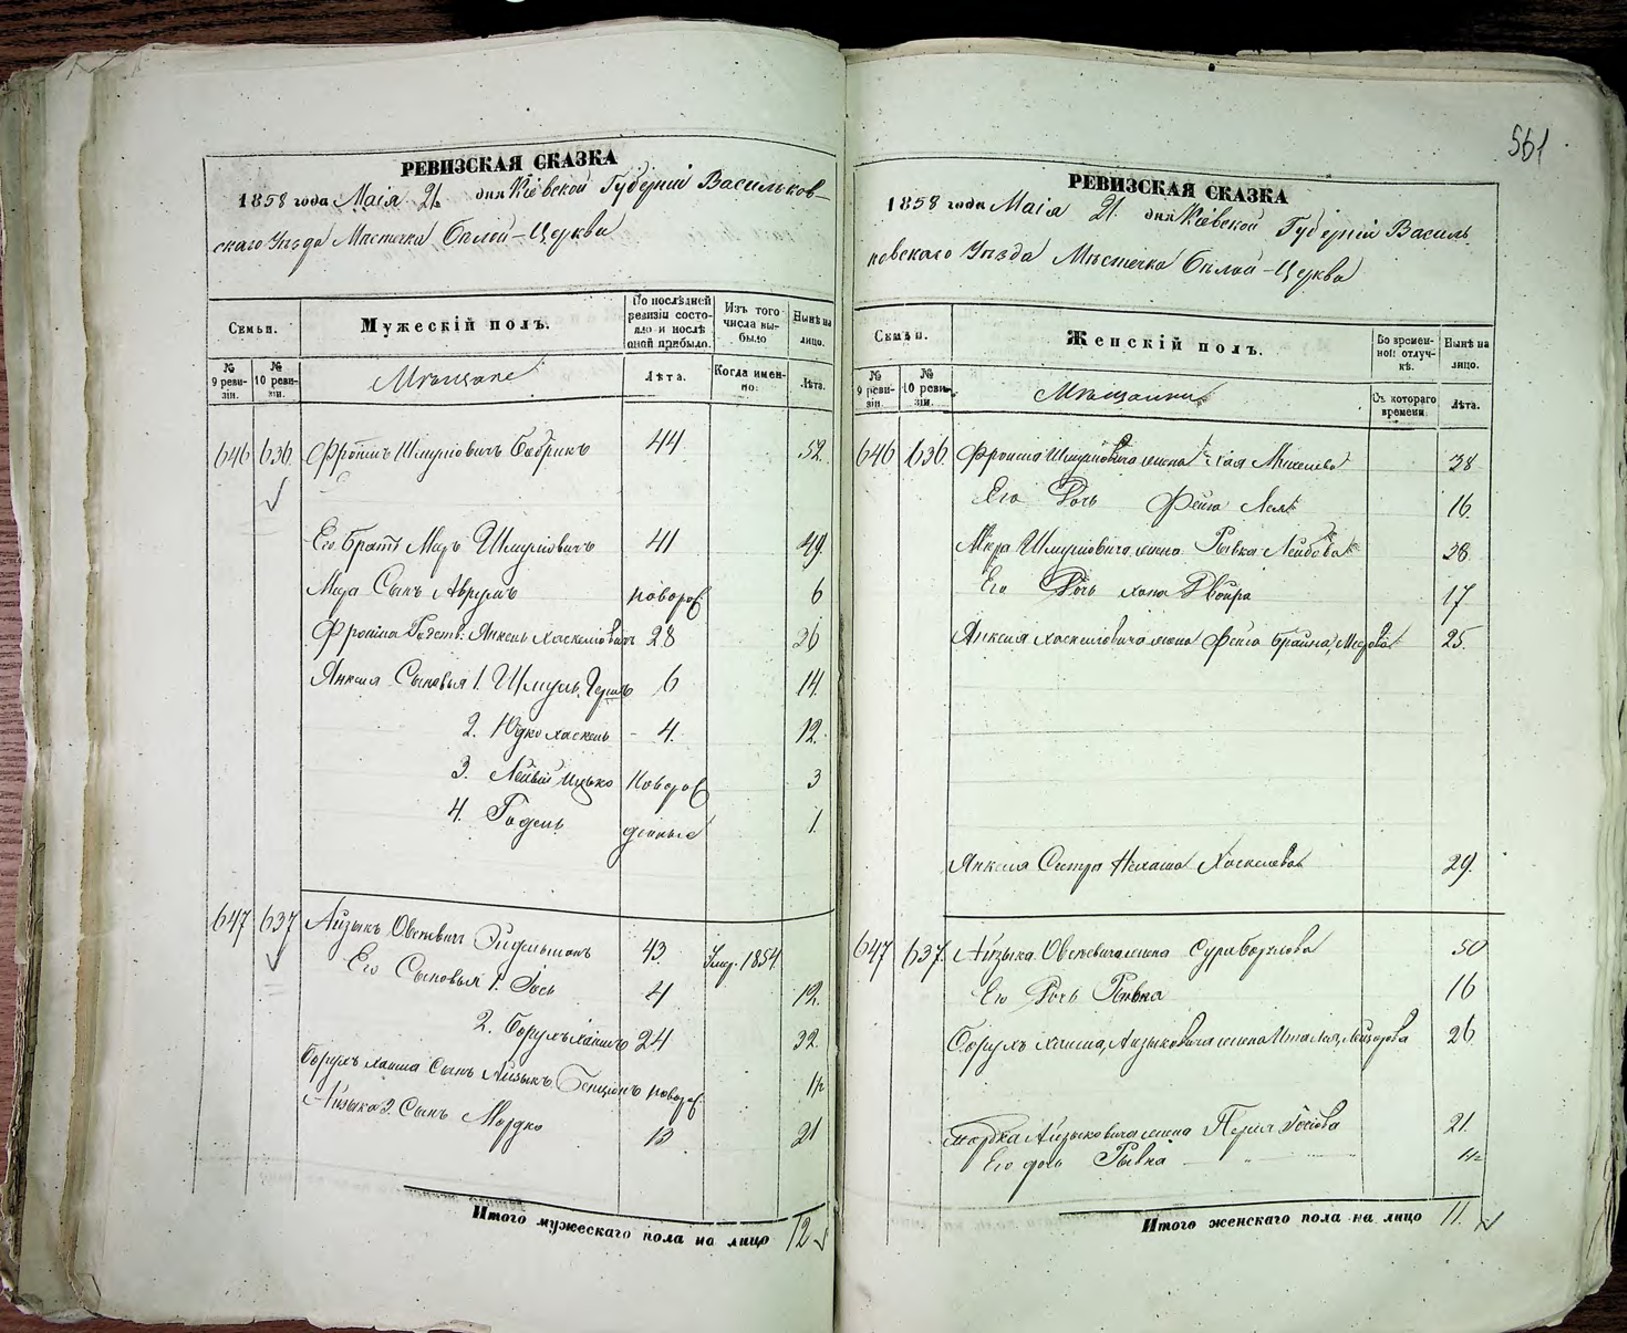 РЕВИЗСКАЯ СКАЗКА
1858 года Маія 21 дня Кіевской Губерніи Васильков-
скаго Уѣзда Мѣстечка Бѣлой-Церкви
Семьи.
Мужескій полъ.
По послѣдней ревизіи состояло и послѣ оной прибыло.
Изъ того числа выбыло
Нынѣ на лицо.
№ 9 ревизіи.
№ 10 ревизіи.
Мѣщане
Лѣта.
Когда именно:
Лѣта.
646 636 Фроимъ Шмуліовичъ Бобрикъ 44 52.
Его Братъ Меръ Шмуліовичъ 41 49.
Мера Сынъ Аврумъ новорож 6
Фроима Родств: Янкель Хаскеліовичъ 28 26
Янкеля Сыновья 1. Шмуль Герш 6 14.
2. Юдко Хаскель - 4. 12.
3. Лейви Ицько Новорож 3
4. Годель денные 1.
647 637 Айзыкъ Овсеевич 43. Умер. 1854
Его Сыновья 1. Іось 4 12.
2. Борухъ Хаимъ 24 32.
Борухъ Хаима Сынъ Айзыкъ Бенціонъ новорож. 1/2
Айзыка 3. Сынъ Мордко 13 21
Итого мужескаго пола на лицо 12
561
РЕВИЗСКАЯ СКАЗКА
1858 года Маія 21. дня Кіевской Губерніи Василь
ковскаго Уѣзда Мѣстечка Бѣлой-Церкви
Семьи.
Женскій полъ.
Во временной отлучкѣ.
Нынѣ на лицо.
№ 9 ревизіи
№ 10 ревизіи.
Мѣщанки
Съ котораго времени.
Лѣта.
646 636. Фроима Шмуліовича жена Хая 38
Его Дочь Фейга Лея 16.
Мера Шмуліовича жена Рывка Лейбова 38
Его Дочь Хана Двойра 17
Янкеля Хаскеліовича жена Фейга Брайна, Меерова 25.
Янкеля Сестра Нехама Хаскелева 29.
647 637. Айзыка Овсеевича жена Сура Борхова 50
Его Дочь Рывка 16
Борухъ Хаима, Айзыковича жена Ита Лея, Лейзорова 26
Мордка Айзыковича жена Перля Іосіова 21.
Его дочь Рывка 1/2
Итого женскаго пола на лицо 11.